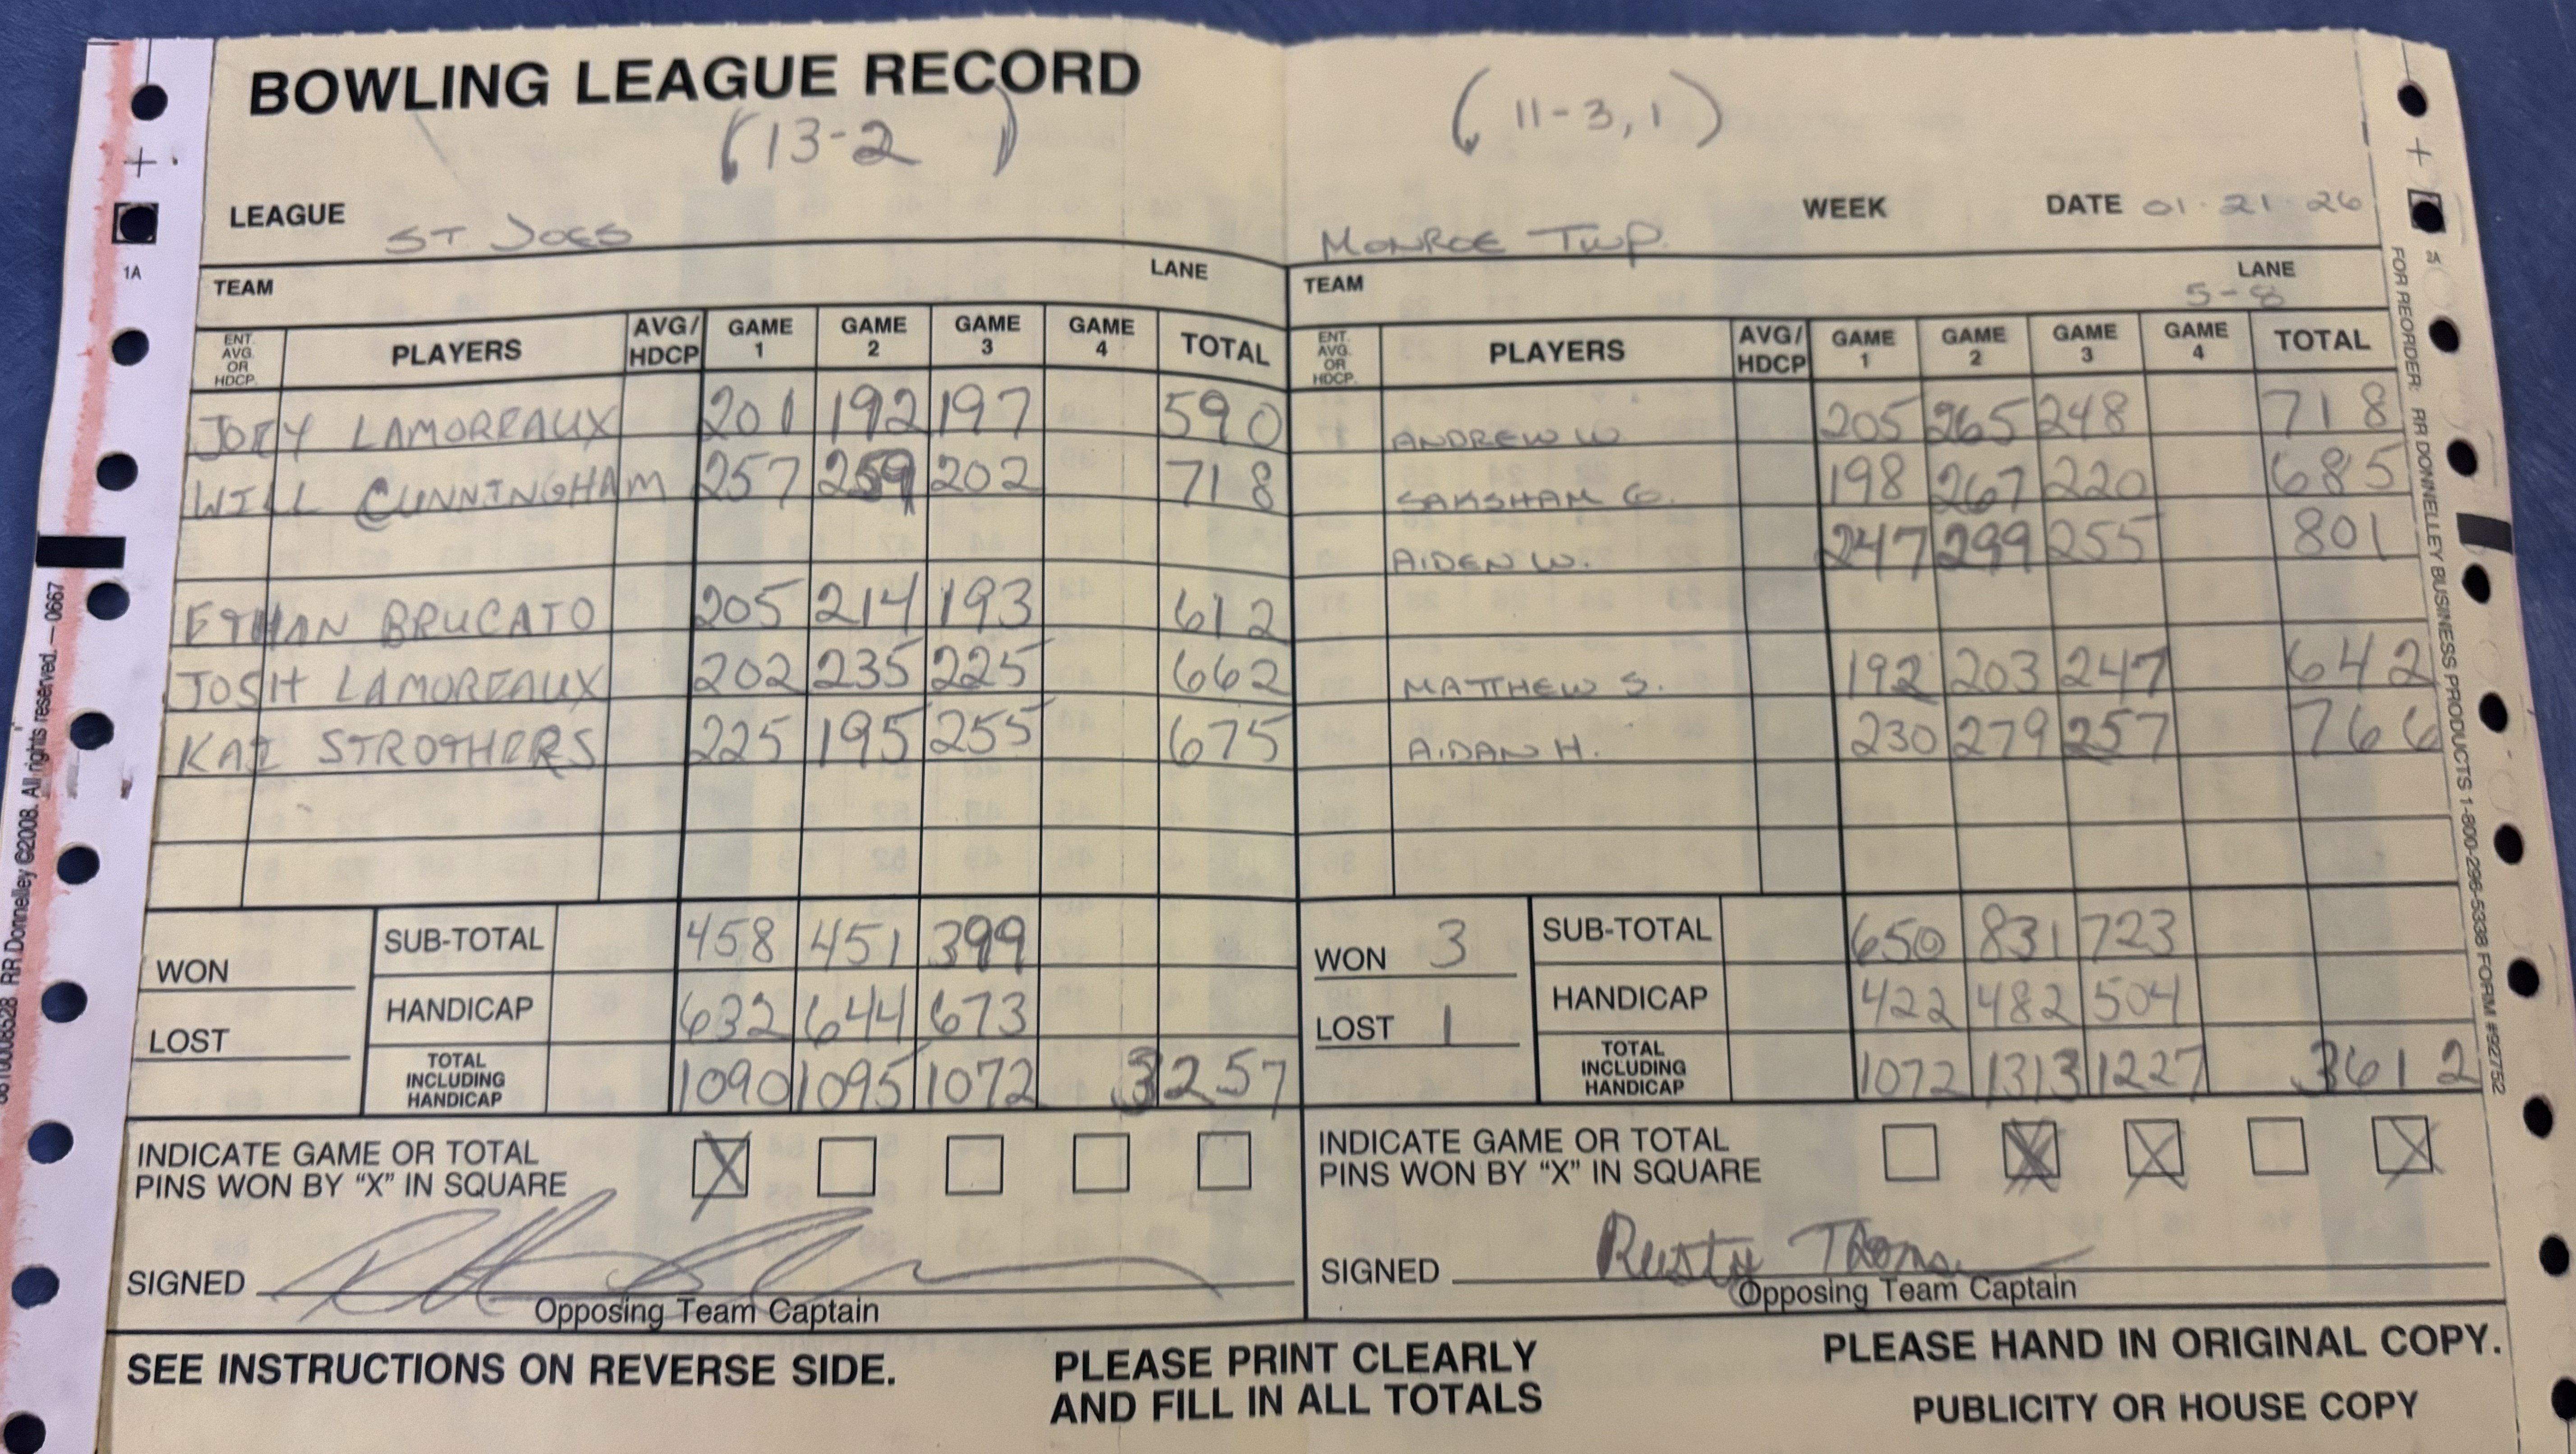 BOWLING LEAGUE RECORD
(13-2)
(11-3,1)
LEAGUE ST JOES
MONROE TWP. WEEK DATE 01·21·26
TEAM LANE
TEAM LANE 5-8
ENT. AVG. OR HDCP. PLAYERS AVG/HDCP GAME 1 GAME 2 GAME 3 GAME 4 TOTAL
JOEY LAMOREAUX 201 192 197 590
WILL CUNNINGHAM 257 259 202 718
ETHAN BRUCATO 205 214 193 612
JOSH LAMOREAUX 202 235 225 662
KAI STROTHERS 225 195 255 675
WON SUB-TOTAL 458 451 399
LOST HANDICAP 632 644 673
TOTAL INCLUDING HANDICAP 1090 1095 1072 3257
INDICATE GAME OR TOTAL
PINS WON BY "X" IN SQUARE X
SIGNED
Opposing Team Captain
ENT. AVG. OR HDCP. PLAYERS AVG/HDCP GAME 1 GAME 2 GAME 3 GAME 4 TOTAL
ANDREW W 205 265 248 718
SAKSHAM G. 198 267 220 685
AIDEN W. 247 299 255 801
MATTHEW S. 192 203 247 642
AIDAN H. 230 279 257 766
WON 3 SUB-TOTAL 650 831 723
LOST 1 HANDICAP 422 482 504
TOTAL INCLUDING HANDICAP 1072 1313 1227 3612
INDICATE GAME OR TOTAL
PINS WON BY "X" IN SQUARE X X X
SIGNED Rusty
Opposing Team Captain
SEE INSTRUCTIONS ON REVERSE SIDE.
PLEASE PRINT CLEARLY
AND FILL IN ALL TOTALS
PLEASE HAND IN ORIGINAL COPY.
PUBLICITY OR HOUSE COPY
1A
2A
RR Donnelley ©2008. All rights reserved.—0667
FOR REORDER: RR DONNELLEY BUSINESS PRODUCTS 1-800-296-5338 FORM #92752